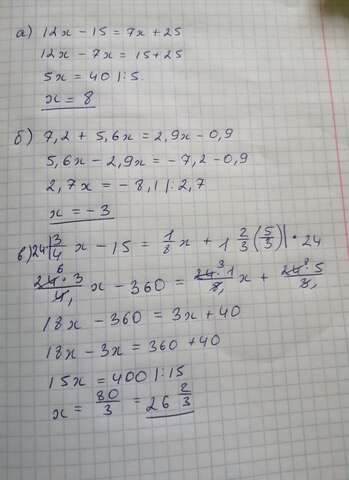 а) 12x - 15 = 7x + 25
12x - 7x = 15 + 25
5x = 40 | : 5
x = 8
б) 7,2 + 5,6x = 2,9x - 0,9
5,6x - 2,9x = -7,2 - 0,9
2,7x = -8,1 | : 2,7
x = -3
в) 24 | 3/4 x - 15 = 1/8 x + 1 2/3 (5/3) | · 24
24 6 · 3 / 4, x - 360 = 24 3 · 1 / 8, x + 24 8 · 5 / 3,
18x - 360 = 3x + 40
18x - 3x = 360 + 40
15x = 400 | : 15
x = 80/3 = 26 2/3